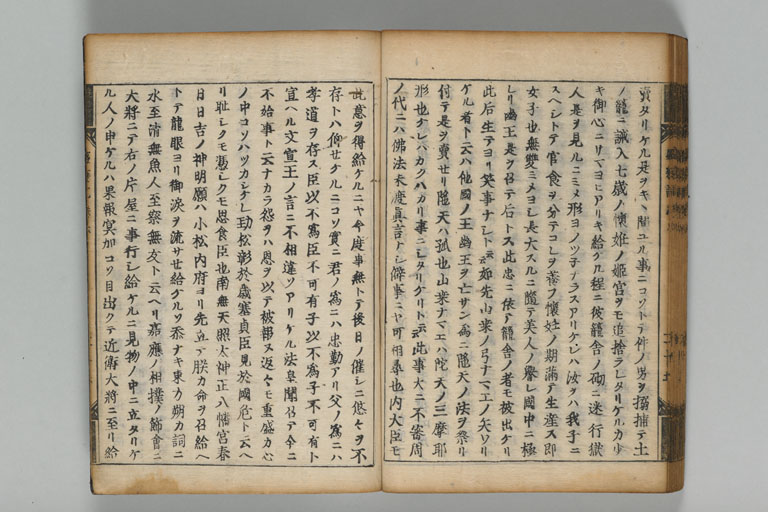 賣タリケル是ヲキヽ聞ユル事ニコソトテ件ノ男ヲ搦捕テ土
ノ籠ニ誡入七歳ノ懐妊ノ姫宮ヲモ追捨ラレタリケルカ少
キ御心ニリマヨヒアリキ給ケル程ニ彼籠舎ノ砌ニ迷行獄
人是ヲ見ルニミメ形ヨノツ子ナラスアリケレハ汝ヲハ我子ニ
スヘシトテ官食ヲ分テコレヲ養フ懐妊ノ期満テ生産ス即
女子也無雙ミメヨシ長大スルニ隨テ美人ノ譽レ國中ニ極
レリ幽王是ヲ召テ后トス此忠ニ依テ籠舎ノ者モ被出ケリ
此后生テヨリ笑事ナシト云云如先山桑ノ弓ナマエノ矢ソリ
ケル者ト云ハ他國ノ王幽王ヲ亡サン爲ニ隨天ノ法ヲ祭リ
付テ是ヲ賣セリ隨天ハ狐也山桑ナマエハ陀天ノ三摩耶
形也ナレハカクハカリ事ニシタリケリト云云此事大ニ不審周
ノ代ニハ佛法未度眞言ケシ僻事ニヤ可相尋也内大臣モ
此意ヲ得給ケルニヤ今度事無トテ後日ノ催シニ悠々ヲ不
存トハ仰セケルニコソ實ニ君ノ爲ニハ忠勤アリ父ノ爲ニハ
孝道ヲ存ス臣以不爲臣不可有子以不爲子不可有ト
宣ヘル文宣王ノ言ニ不相違ソアリケル法皇聞召テ今ニ
不始事ト云ナカラ怨ヲハ恩ヲ以テ被報ス返々モ重盛カ心
ノ中コソハツカシケレ勁松彰於歳寒貞臣見於國危ト云ヘ
リ耻シクモ憑シクモ思食臣也南無天照太神正八幡宮春
日日吉ノ神明願ハ小松内府ヨリ先立テ朕カ命ヲ召給ヘ
トテ龍眼ヨリ御涙ヲ流サセ給ケルソ忝ナキ東方朔カ詞ニ
水至清無魚人至察無友ト云ヘリ嘉應ノ相撲ノ節會ニ
大將ニテ右ノ片屋ニ事行シ給ケルニ見物ノ中ニ立タリケ
ル人ノ申ケルハ果報冥加コソ目出クテ近衛大將ニ至リ給